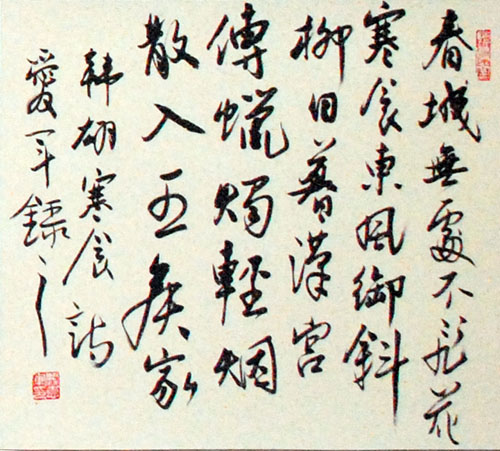 春城無處不飛花
寒食東風御斜
柳日暮漢宮
傳蠟燭輕烟
散入五侯家
韩翃寒食詩
愛军録之